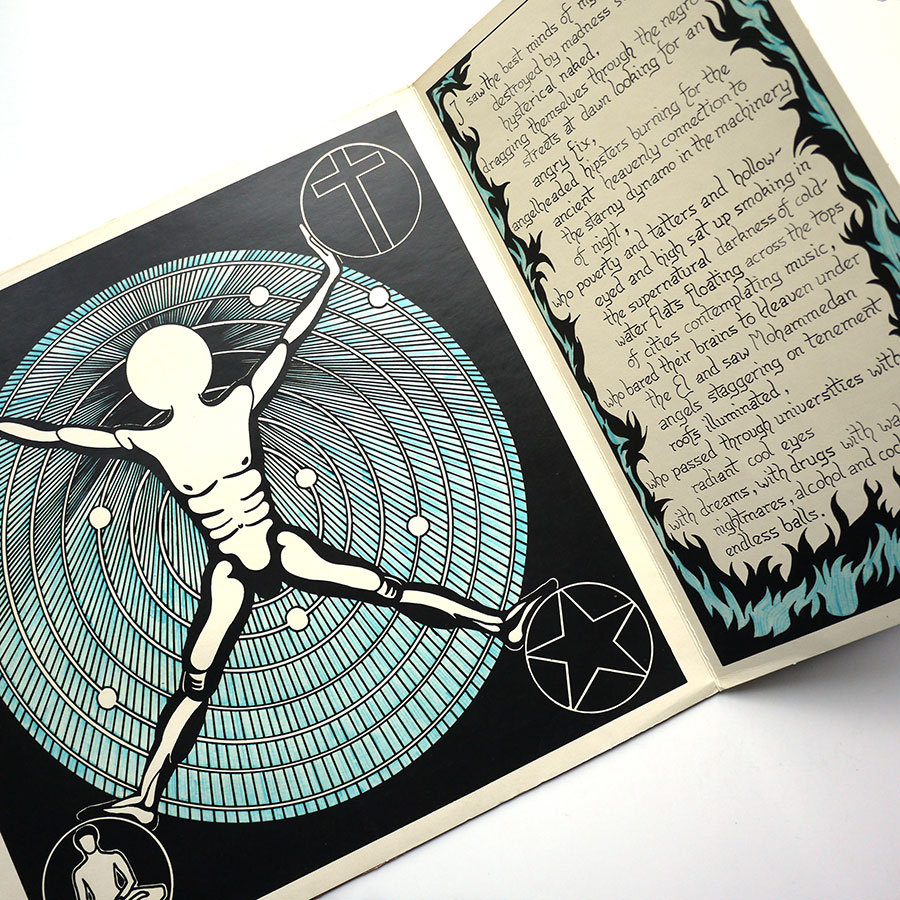 I saw the best minds of my
destroyed by madness s
hysterical naked,
dragging themselves through the negro
streets at dawn looking for an
angry fix,
angelheaded hipsters burning for the
ancient heavenly connection to
the starry dynamo in the machinery
of night,
who poverty and tatters and hollow-
eyed and high sat up smoking in
the supernatural darkness of cold-
water flats floating across the tops
of cities contemplating music,
who bared their brains to Heaven under
the El and saw Mohammedan
angels staggering on tenement
roofs illuminated,
who passed through universities with
radiant cool eyes
with dreams, with drugs with wa
nightmares, alcohol and coc
endless balls.